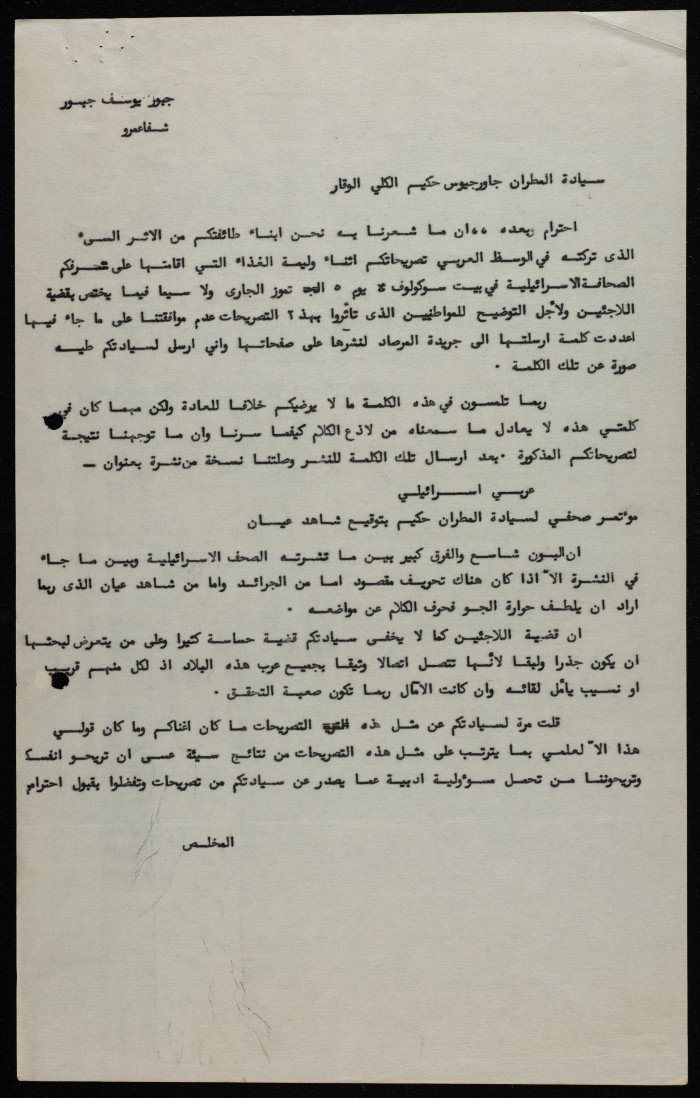 جبور يوسف جبور
شفاعمرو
سيادة المطران جاورجيوس حكيم الكلي الوقار
احترام وبعده ،، ان ما شعرنا به نحن ابناء طائفتكم من الاثر السىء
الذى تركته في الوسط العربي تصريحاتكم اثناء وليمة الغذاء التي اقامتها على شرفكم
الصحافة الاسرائيلية في بيت سوكولوف يوم ٥ تموز الجارى ولا سيما فيما يختص بقضية
اللاجئين ولاجل التوضيح للمواطنيين الذى تأثروا بهذ٢ التصريحات عدم موافقتنا على ما جاء فيها
اعددت كلمة ارسلتها الى جريدة المرصاد لنشرها على صفحاتها واني ارسل لسيادتكم طيه
صورة عن تلك الكلمة ٠
ربما تلمسون في هذه الكلمة ما لا يرضيكم خلافا للعادة ولكن مهما كان في
كلمتي هذه لا يعادل ما سمعناه من لاذع الكلام كيفما سرنا وان ما توجهنا نتيجة
لتصريحاتكم المذكورة ٠بعد ارسال تلك الكلمة للنشر وصلتنا نسخة من نشرة بعنوان —
عربي اسرائيلي
مؤتمر صحفي لسيادة المطران حكيم بتوقيع شاهد عيان
ان البون شاسع والفرق كبير بين ما نشرته الصحف الاسرائيلية وبين ما جاء
في النشرة الا اذا كان هناك تحريف مقصود اما من الجرائد واما من شاهد عيان الذى ربما
اراد ان يلطف حرارة الجو فحرف الكلام عن مواضعه ٠
ان قضية اللاجئين كما لا يخفى سيادتكم قضية حساسة كثيرا وعلى من يتعرض لبحثها
ان يكون جذرا ولبقا لأنها تتصل اتصالا وثيقا بجميع عرب هذه البلاد اذ لكل منهم قريب
او نسيب يأمل لقائه وان كانت الآمال ربما تكون صعبة التحقق ٠
قلت مرة لسيادتكم عن مثل هذه التصريحات ما كان اغناكم وما كان قولي
هذا الا لعلمي بما يترتب على مثل هذه التصريحات من نتائج سيئة عسى ان تريحو انفسك
وتريحوننا من تحمل مسؤولية ادبية عما يصدر عن سيادتكم من تصريحات وتفضلوا بقبول احترام
المخلص